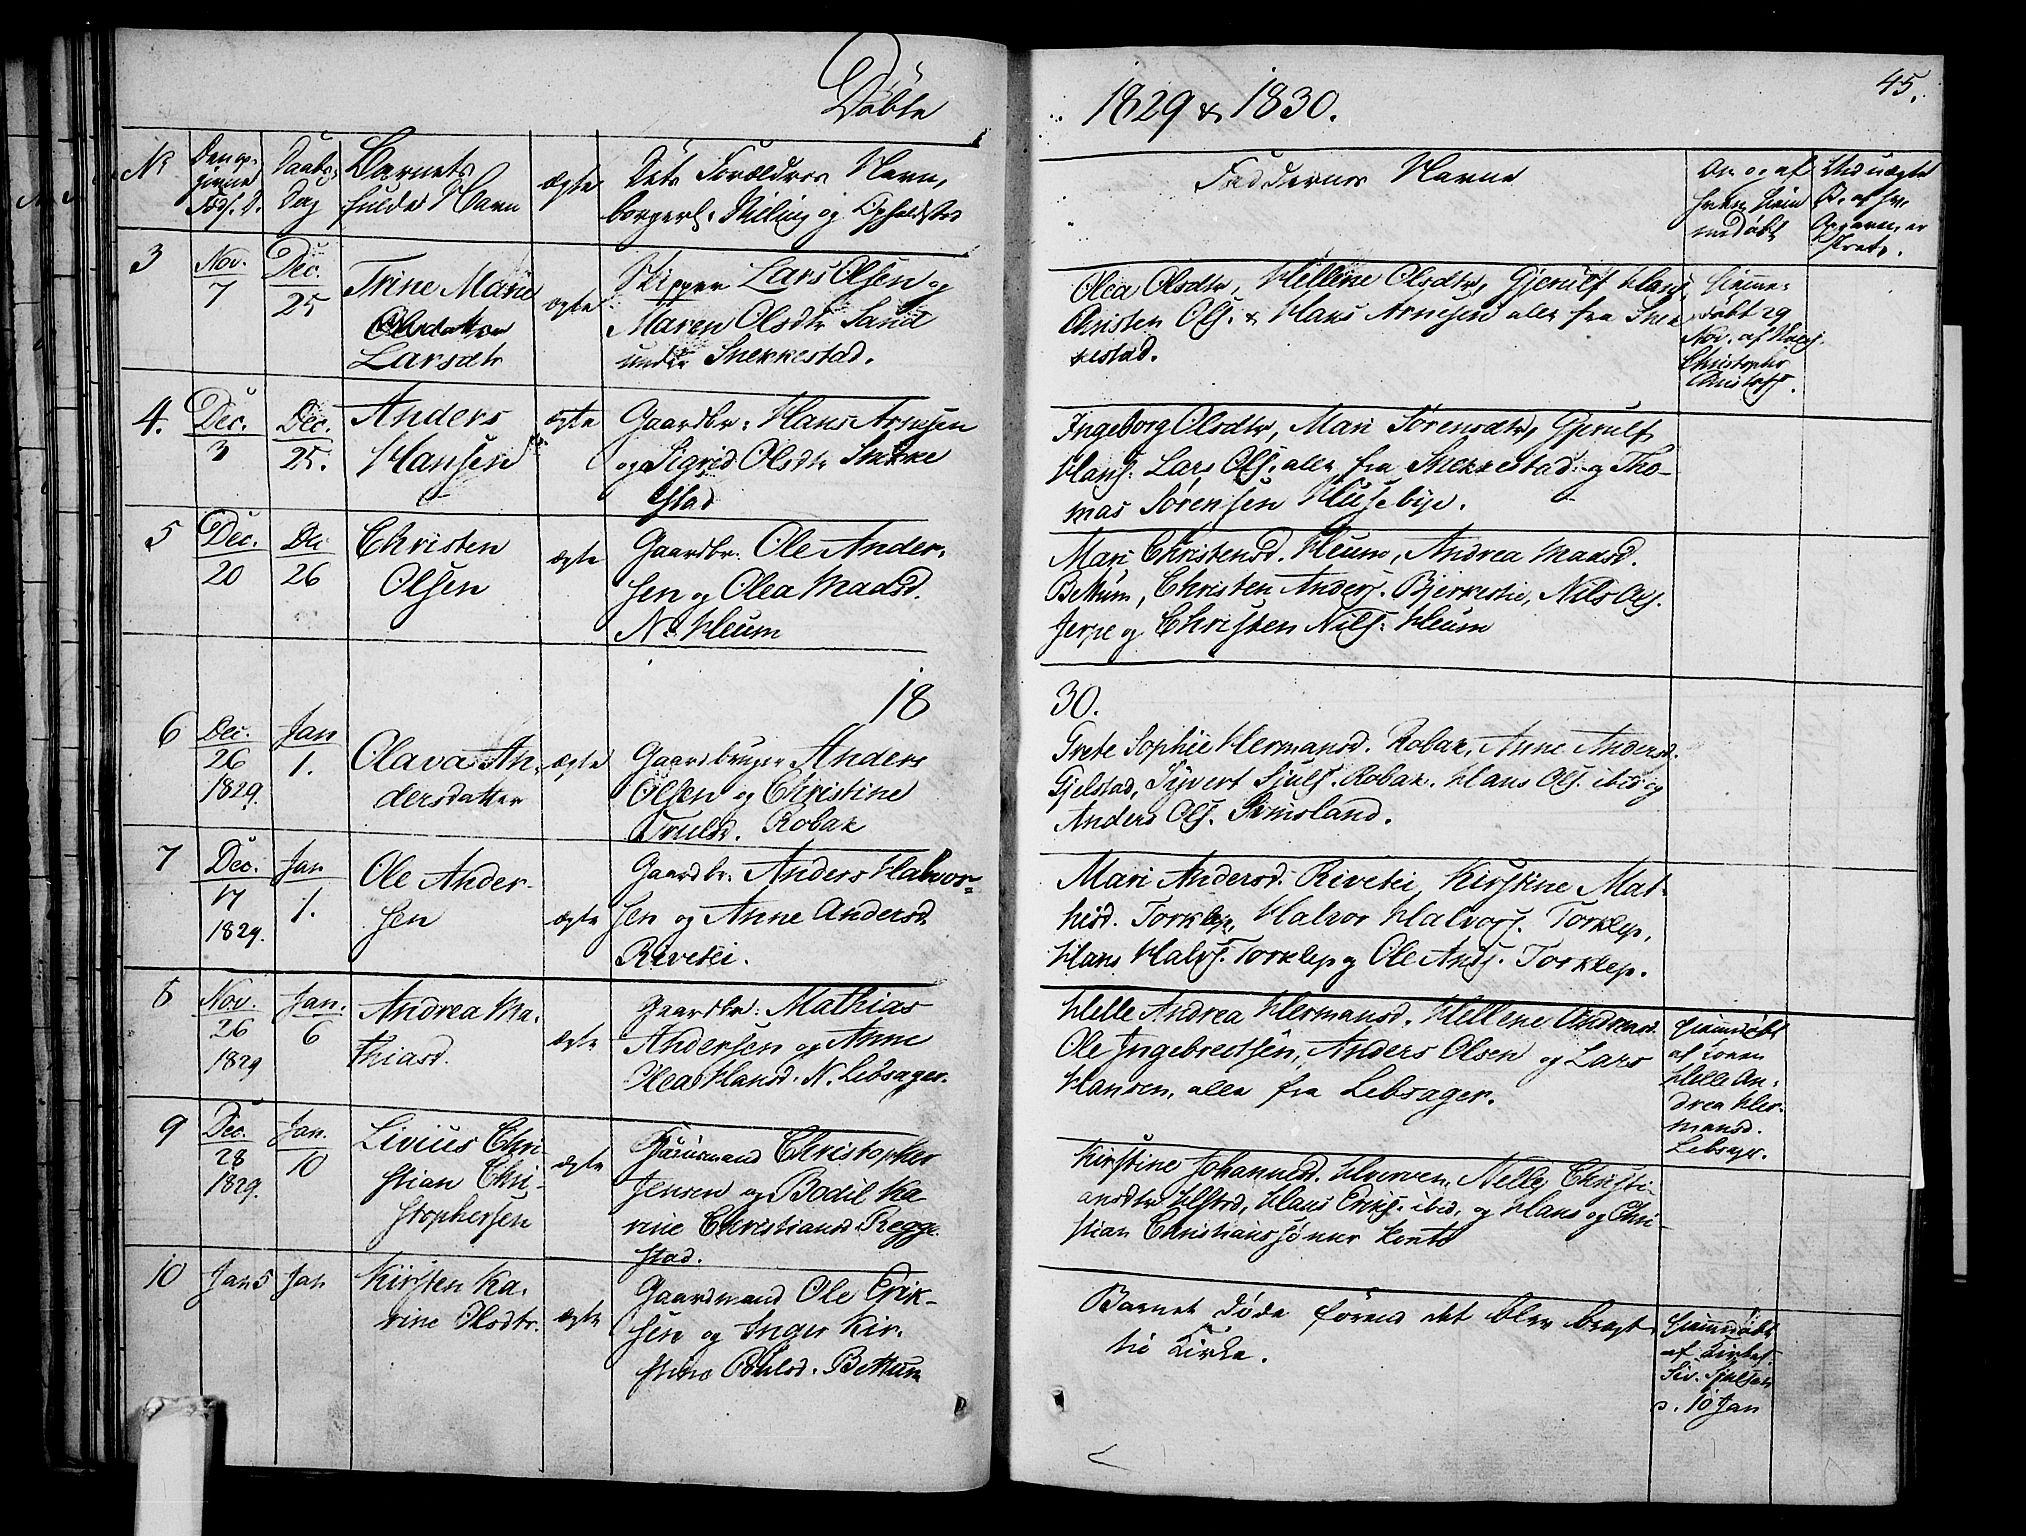 Døbte
1829 & 1830.
45.
No
Den op-
givne
Føds. D.
Daabs-
Dag
Barnets
fulde Navn
ægte
Dets Forældres Navn,
borgerl. Stilling og Opholdsted
Faddernes Navne
Om og af
hvem hjem
medøbt
3
Nov.
7
Dec.
25
Trine Marie
Larsdtr
ægte
Skipper Lars Olsen og
Maren Olsdtr Sand
under Snekkestad.
Olea Olsdtr, Hellene Olsdtr, Gjerulf Hans.
Christen Ols. & Hans Arnesen alle fra Snek
kestad.
Hjemme-
døbt 29
Nov. af
Christopher
4.
Dec.
3
Dec.
25.
Anders
Hansen
ægte
Gaardbr. Hans Arnesen
og Sigrid Olsdtr Snekke
stad
Ingeborg Olsdtr, Mari Sørensdtr, Gjerulf
Hans. Lars Ols. alle fra Snekkestad og Tho-
mas Sørensen Husebye.
5
Dec.
20
Dec
26
Christen
Olsen
ægte
Gaardbr. Ole Ander-
sen og Olea Madsd.
N. Heum
Mari Christensd. Heum, Andrea Madsd.
Bettum, Christen Anders. Bjerkestie, Nils Ols.
Jerpe og Christen Nils. Heum
18
30.
6
Dec.
26
1829.
Jan
1.
Olava An-
dersdatter
ægte
Gaardbruger Anders
Olsen og Christine
Trulsd. Robak
Grete Sophie Hermansd. Robak, Anne Andersd.
Gjelstad, Syvert Sjuls. Robak. Hans Ols. ibid og
Anders Ols. Grimsland.
7
Dec.
17
1829.
Jan
1.
Ole Ander-
sen
ægte
Gaardbr. Anders Halvor-
sen og Anne Andersd
Rivetei.
Mari Andersd. Rivetei, Kirstine Mat-
hisd. Torklep, Halvor Halvors. Torklep,
Hans Halvs. Torklep og Ole Ands. Torklep.
8
Nov.
26
1829
Jan.
6
Andrea Ma-
thiasd.
ægte
Gaardbr. Mathias
Andersen og Anne
Olea Hansd. N. Lebsager.
Helle Andrea Hermansd. Hellene Andreasd.
Ole Ingebrectsen, Anders Olsen og Lars
Hansen, alle fra Lebsager.
Hjemdøbt
af Konen
Helle An-
drea Her-
mansd.
Lebsager.
9
Dec.
28
1829.
Jan.
10
Livius Chri-
stian Chri-
stophersen
ægte
Huusmand Christopher
Jensen og Bodil Ka
rine Christiansd Regge
stad.
Kirstine Johannesd. Hverven, Nelly Christi-
ansdtr Ulstad, Hans Eriks. ibid, og Hans og Chri-
stian Christianssønner Konto
10
Jan 5
Jan
Kirsten Ka-
rine Olsdtr.
ægte
Gaardmand Ole Erik-
sen og Inger Kir-
stine Poulsd. Bettum
Barnet døde førend det blev bragt
til Kirke.
Hjemdøbt
af Kirkes.
Siv. Sjulsen
d. 10 Jan